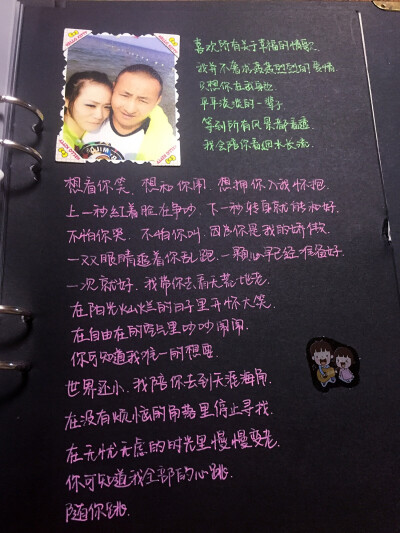 喜欢所有关于幸福的情歌
我并不奢求轰轰烈烈的爱情
只想你在我身边
平平淡淡的一辈子
等到所有风景都看透
我会陪你看细水长流
想看你笑. 想和你闹. 想拥你入我怀抱.
上一秒红着脸在争吵. 下一秒转身就能和好.
不怕你哭. 不怕你叫. 因为你是我的骄傲.
一双眼睛追着你乱跑. 一颗心早已经准备好.
一次就好. 我带你去看天荒地老.
在阳光灿烂的日子里开怀大笑.
在自由自在的空气里吵吵闹闹.
你可知道我唯一的想要.
世界还小. 我陪你去到天涯海角.
在没有烦恼的角落里停止寻找.
在无忧无虑的时光里慢慢变老.
你可知道我全部的心跳.
随你跳.